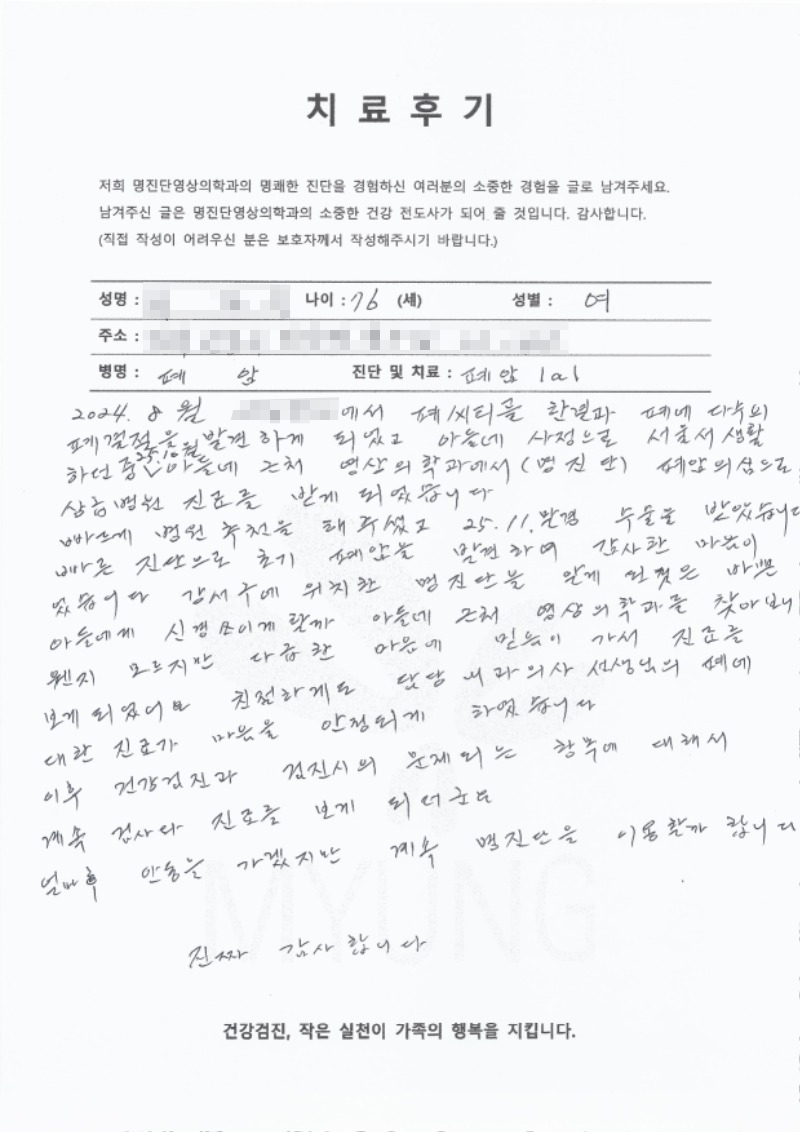 치료후기
저희 명진단영상의학과의 명쾌한 진단을 경험하신 여러분의 소중한 경험을 글로 남겨주세요.
남겨주신 글은 명진단영상의학과의 소중한 건강 전도사가 되어 줄 것입니다. 감사합니다.
(직접 작성이 어려우신 분은 보호자께서 작성해주시기 바랍니다.)
성명 : 나이 : 76 (세) 성별 : 여
주소 :
병명 : 폐 암 진단 및 치료 : 폐암 1a1
2024. 8월 에서 폐/시티를 한결과 폐에 다수의
폐결절을 발견하게 되었고 아들네 사정으로 서울서 생활
하던중 25.10월 아들네 근처 영상의학과에서 (명진단) 폐암의심으로
상급병원 진료를 받게 되었습니다
빠르게 병원 추천을 해주셨고 25.11.말경 수술을 받았습니다
빠른 진단으로 초기 폐암을 발견하여 감사한 마음이
있습니다 강서구에 위치한 명진단을 알게 된것은 바쁜
아들에게 신경쓰이게 할까 아들네 근처 영상의학과를 찾아보니
웬지 모르지만 다급한 마음에 믿음이 가서 진료를
보게 되었어요 친절하게도 담당 내과의사 선생님의 폐에
대한 진료가 마음을 안정되게 하였습니다
이후 건강검진과 검진시의 문제되는 항목에 대해서
계속 검사와 진료를 보게 되더군요
얼마후 안동을 가겠지만 계속 명진단을 이용할까 합니다
진짜 감사합니다
MYUNG
건강검진, 작은 실천이 가족의 행복을 지킵니다.